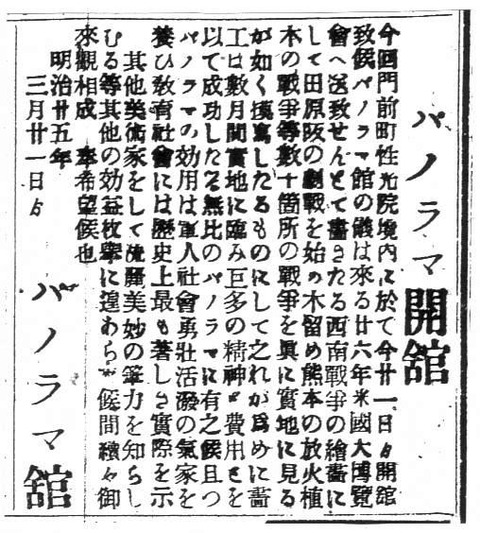 パノラマ開舘
今回門前町性光院境内に於て今廿一日ゟ開舘
致候パノラマ舘の儀は來る廿六年米國大博覽
會へ送致せんとて畵きたる西南戰爭の繪畵に
して田原阪の劇戰を始め木留め熊本の放火植
木の戰爭等數十箇所の戰爭を眞に實地に見る
が如く摸寫したるものにして之れが爲めに畵
工は數月間實地に臨み巨多の精神と費用とを
以て成功したる無比のパノラマに有之候且つ
パノラマの効用は軍人社會勇壯活潑の氣象を
養ひ敎育社會には歷史上最も著しき實際を示
し其他美術家をして美妙の筆力を知らし
むる等其他の効益枚擧に遑あらず候間續々御
來觀相成 奉希望候也
明治廿五年
三月廿一日ゟ
パノラマ舘